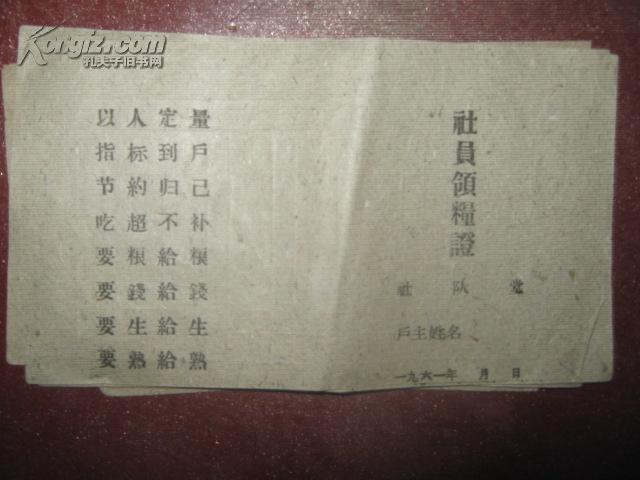 Kongfz.com
孔夫子旧书网
以人定量
指标到戶
节約归己
吃超不补
要粮給粮
要錢給錢
要生給生
要熟給熟
社員領糧證
社 队 党
戶主姓名
一九六一年 月 日